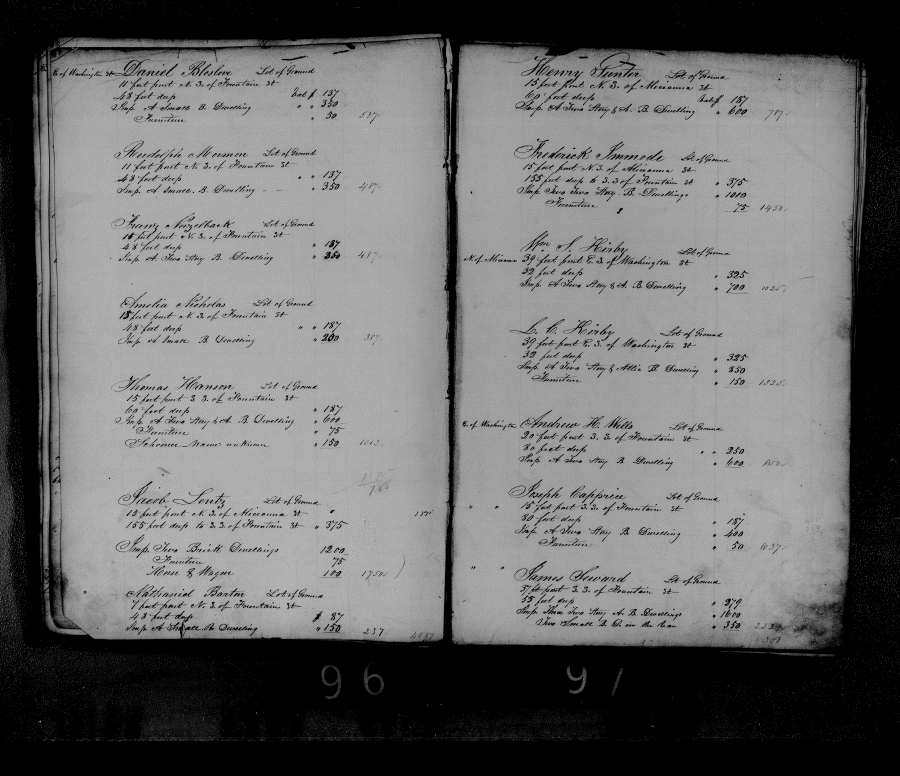 E. of Washington St Daniel Lot of Ground
11 feet part N. S. of Fountain St
48 feet deep Val $ 137
Imp A Small B. Dwelling " " 350
Furniture " 50 537
Rudolph Lot of Ground
11 feet part N. S. of Fountain St
48 feet deep " " 137
Imp A Small B Dwelling " 350 487
Franz Lot of Ground
15 feet part N. S. of Fountain St
48 feet deep " 137
Imp A Two Story B. Dwelling " 350 487
Amelia Nicholas Lot of Ground
15 feet part N. S. of Fountain St
48 feet deep " " 187
Imp A Small B Dwelling " 200 387
Thomas Hanson Lot of Ground
15 feet part S. S. of Fountain St
60 feet deep " 187
Imp A Two Story & A. B. Dwelling " 600
Furniture " 75
Schooner name unknown " 150 1012
Jacob Lentz Lot of Ground
15 feet part N. S. of St " 1375
155 feet deep to S. S. of Fountain St " 375
Imp. Two Brick Dwellings 1200
Furniture 75
Horse & Wagon 100 1750
Nathaniel Barton Lot of Ground
7 feet part N. S. of Fountain St
48 feet deep $ 87
Imp A Small B Dwelling " 150 237
Henry Gunter Lot of Ground
15 feet part N. S. of St
60 feet deep Val $ 187
Imp A Two Story & A. B Dwelling " 600 787
Frederick Immode Lot of Ground
15 feet part N. S. of St
155 feet deep to S. S. of Fountain St " 375
Imp Two Two Story B. Dwellings " 1000
Furniture 75 1450
Wm. S. Kirby Lot of Ground
N. of 39 feet part E. S. of Washington St
32 feet deep " 325
Imp A Two Story & A. B Dwelling " 700 1025
L. C. Kirby Lot of Ground
39 feet part E. S. of Washington St
32 feet deep " 325
Imp A Two Story & Attic B Dwelling " 850
Furniture " 150 1325
E. of Washington Andrew H. Wells Lot of Ground
20 feet part S. S. of Fountain St
80 feet deep " " 250
Imp A Two Story B Dwelling " 600 850
Joseph Capprice Lot of Ground
" " 15 feet part S. S. of Fountain St
80 feet deep " 187
Imp A Two Story B Dwelling " 400
Furniture " 50 637
" " James Seward Lot of Ground
37 ft part S. S. of Fountain St
55 feet deep " 279
Imp Three Two Story A. B Dwellings " 1600
Two Small B. D. in the rear " 350
96 97